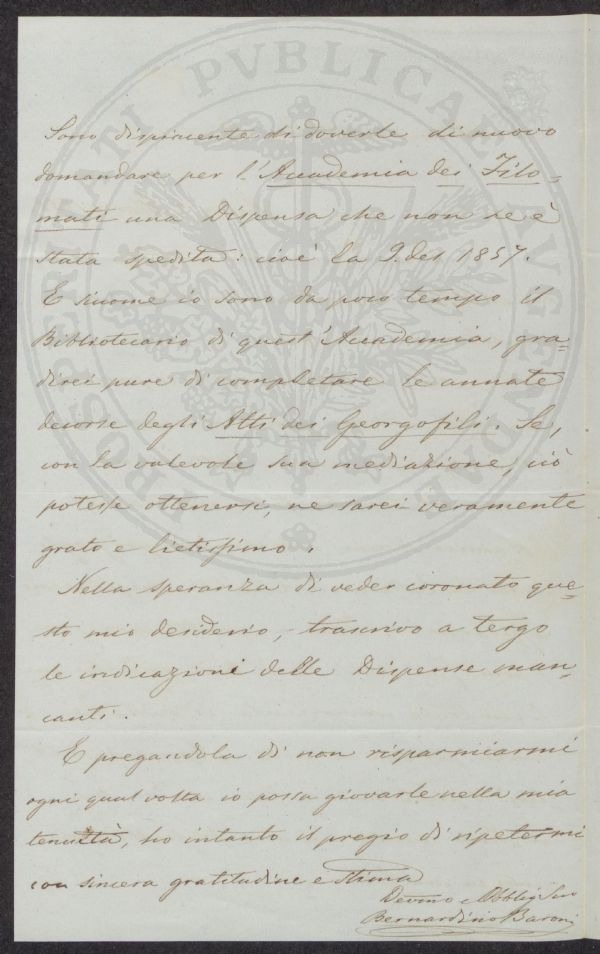 PROSPERITATI PVBLICAE AVGENDAE
Sono dispiacente di doverle di nuovo
domandare per l'Accademia dei Filo=
mati una Dispensa che non se è
stata spedita: cioè la 9. del 1857.
E siccome io sono da poco tempo il
Bibliotecario di quest'Accademia, gra=
direi pure di completare le annate
decorse degli Atti dei Georgofili. Se,
con la valevole sua mediazione, ciò
potesse ottenersi, ne sarei veramente
grato e lietissimo.
Nella speranza di veder coronato que=
sto mio desiderio, trascrivo a tergo
le indicazioni delle Dispense man=
canti.
E pregandola di non risparmiarmi
ogni qual volta io possa giovarle nella mia
tenuità, ho intanto il pregio di ripetermi
con sincera gratitudine e stima
Devmo e Obblig Suo
Bernardino Baroni